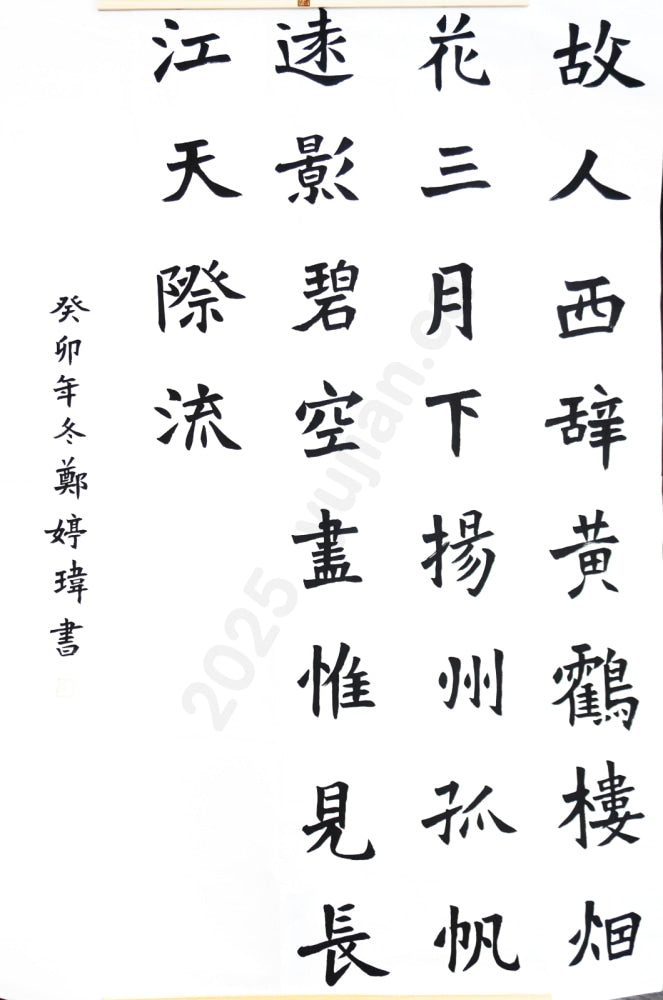 故人西辞黄鸖樓烟
花三月下揚州孤帆
逺影碧空盡惟見長
江天際流
癸卯年冬鄭婷瑋書
2025